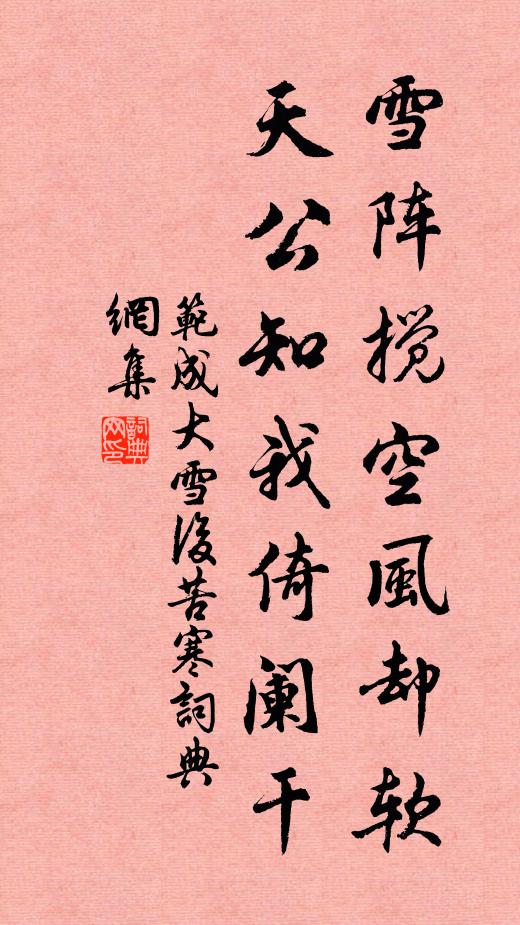 雪阵搅空風却软
天公知我倚阑干
範成大雪後苦寒詞典
網集
詞典
网印